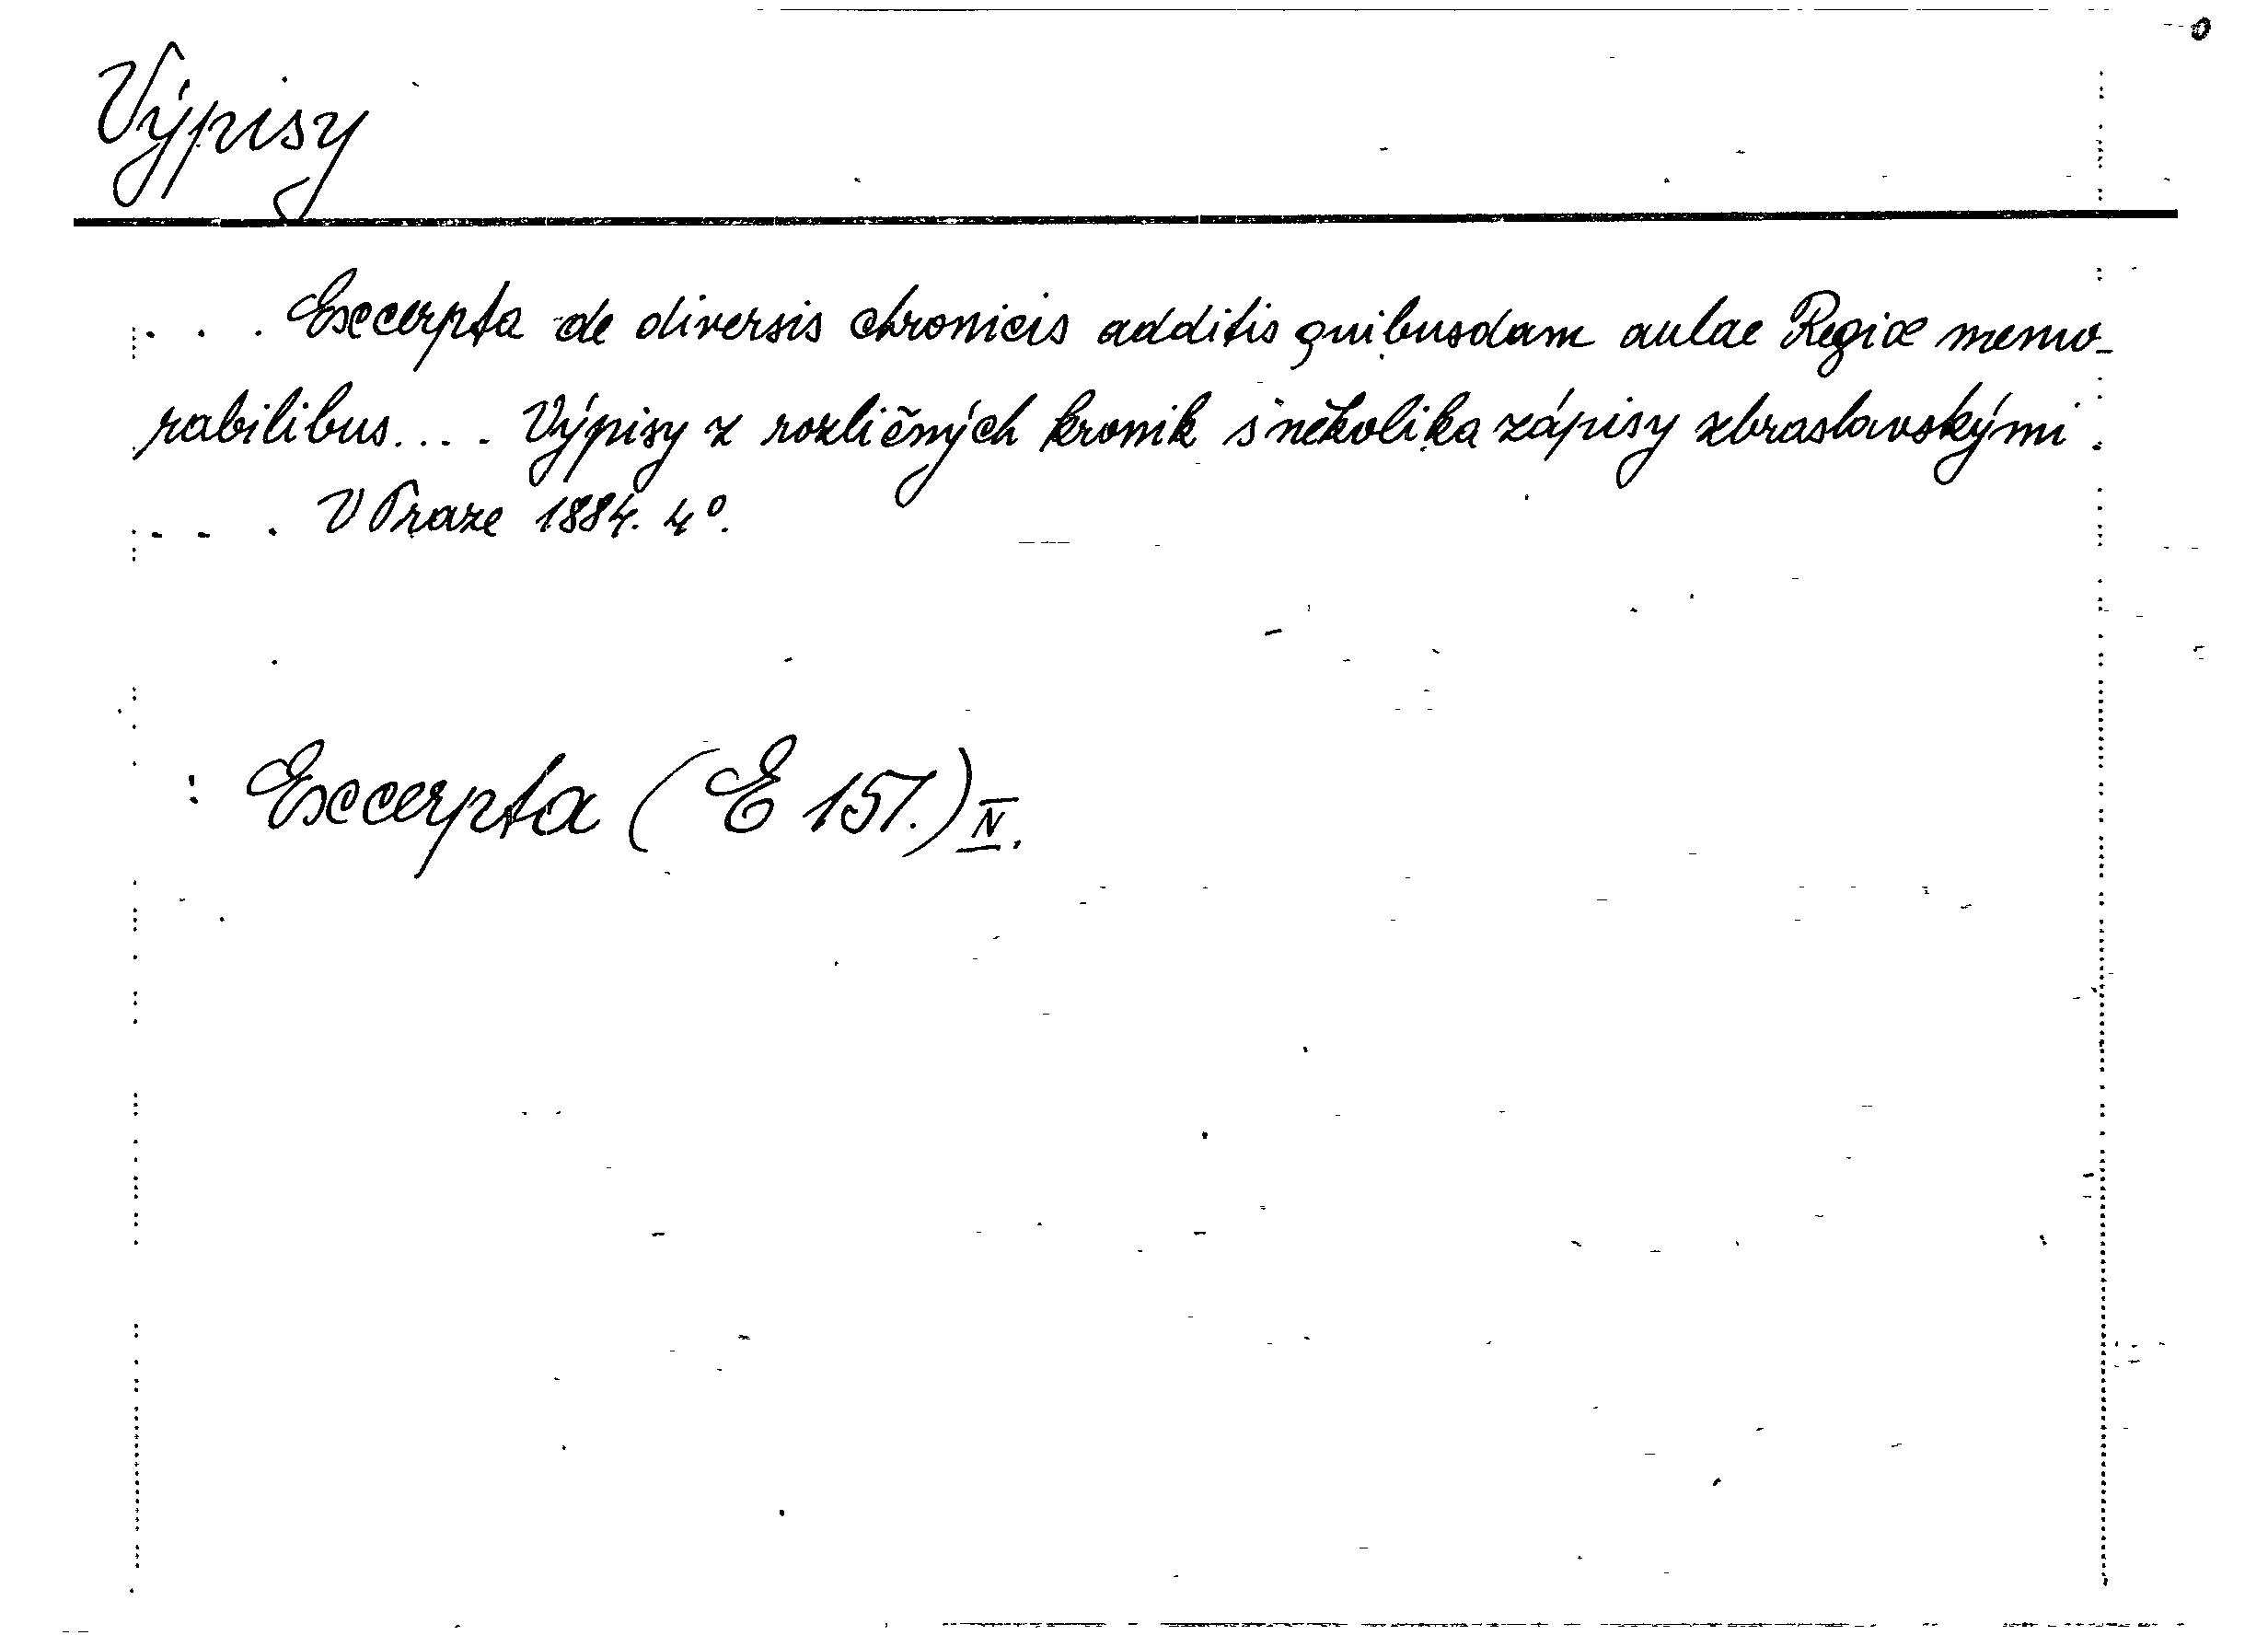 Výpisy
. . . Excerpta de diversis chronicis additis quibusdam aulae Regiæ memo-
rabilibus.... Výpisy z rozličných kronik s několika zápisy zbraslavskými
. . . . V Praze 1884. 4º.
: Excerpta (E 151.) IV.